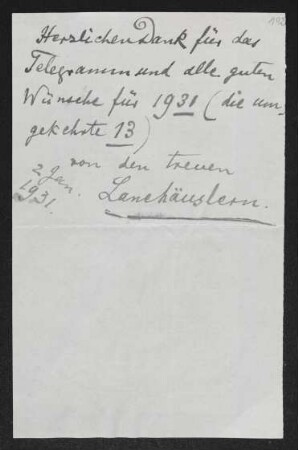 Herzlichen Dank für das
Telegramm und alle guten
Wünsche für 1931 (die um-
gekehrte 13)
von den treuen
2. Jan.
1931.
Lanehäuslern.